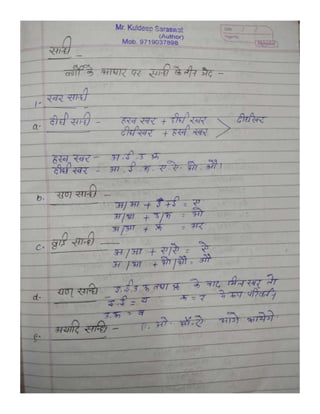 Mr. Kuldeep Saraswat
(Author)
Mob. 9719037898
सन्धि
वर्णों के आधार पर सन्धि के तीन भेद -
1- स्वर सन्धि
a. दीर्घ सन्धि - हस्व स्वर + दीर्घ स्वर
दीर्घ स्वर + हस्व स्वर
दीर्घस्वर
हस्व स्वर - अ. इ. उ. ऋ
दीर्घ स्वर - आ. ई. ऊ. ए. ऐ. ओ. औ.
b. गुण सन्धि -
अ/आ + इ/ई = ए
अ/आ + उ/ऊ = ओ
अ/आ + ऋ = अर
c. वृद्धि सन्धि
अ/आ + ए/ऐ = ऐ
अ/आ + ओ/औ = औ
d. यण सन्धि इ.ई.उ.ऊ तथा ऋ के बाद भिन्न स्वर
इ.ई = य ऋ = र
उ.ऊ = व
e. अयादि सन्धि - ए. ओ. औ. ऐ आगे आयेंगे